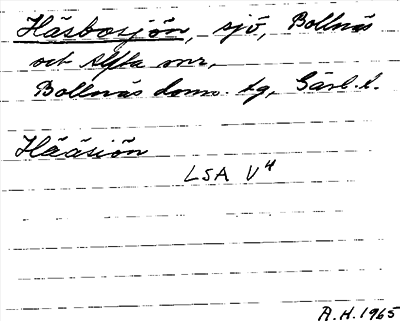 Häsbosjön, sjö, Bollnäs
och Alfta snr,
Bollnäs doms. tg, Gävl. l.
Hääsiön
LSA V4
A.H. 1965